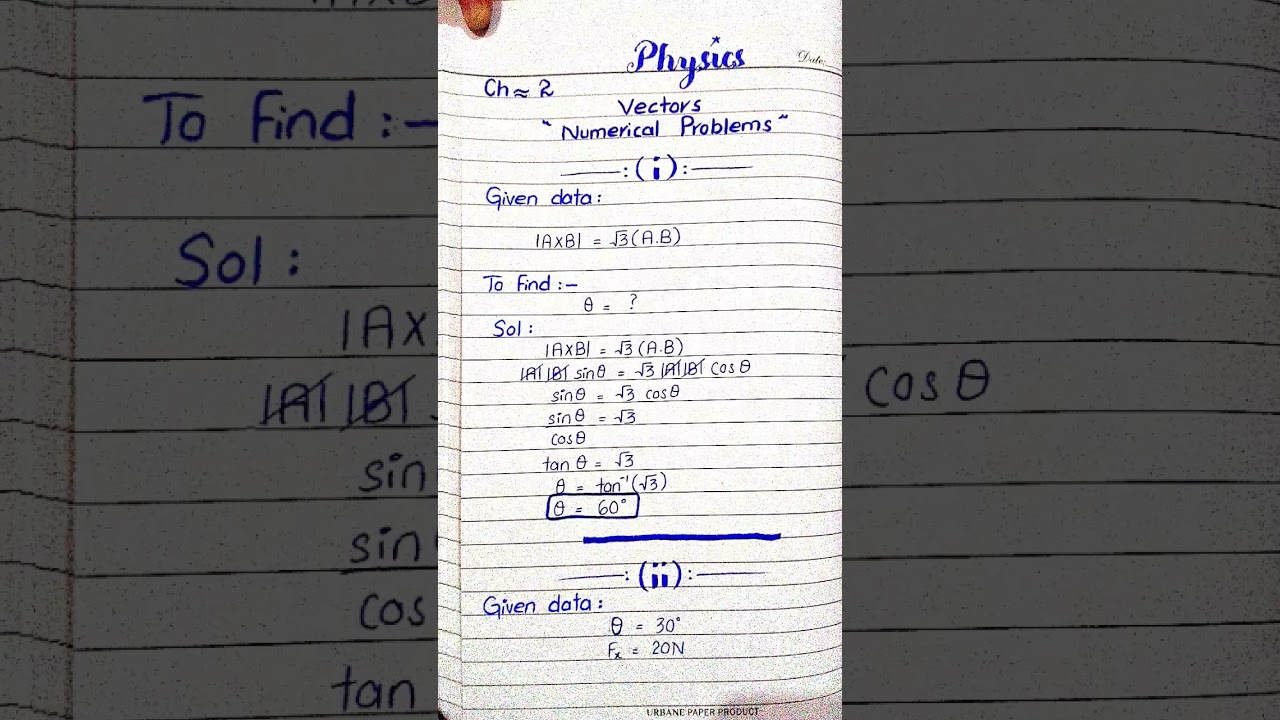 Physics
Date:
Ch ≈ 2
Vectors
" Numerical Problems "
:(i):
Given data:
|A×B| = √3(A.B)
To find :-
θ = ?
Sol :
|A×B| = √3 (A.B)
|A| |B| sinθ = √3 |A| |B| cosθ
sinθ = √3 cosθ
sinθ = √3
cosθ
tan θ = √3
θ = tan⁻¹(√3)
θ = 60°
:(ii):
Given data:
θ = 30°
Fₓ = 20N
URBANE PAPER PRODUCT
To find :-
Sol :
|A×
|A| |B|
sin
sin
cos
tan
cos θ